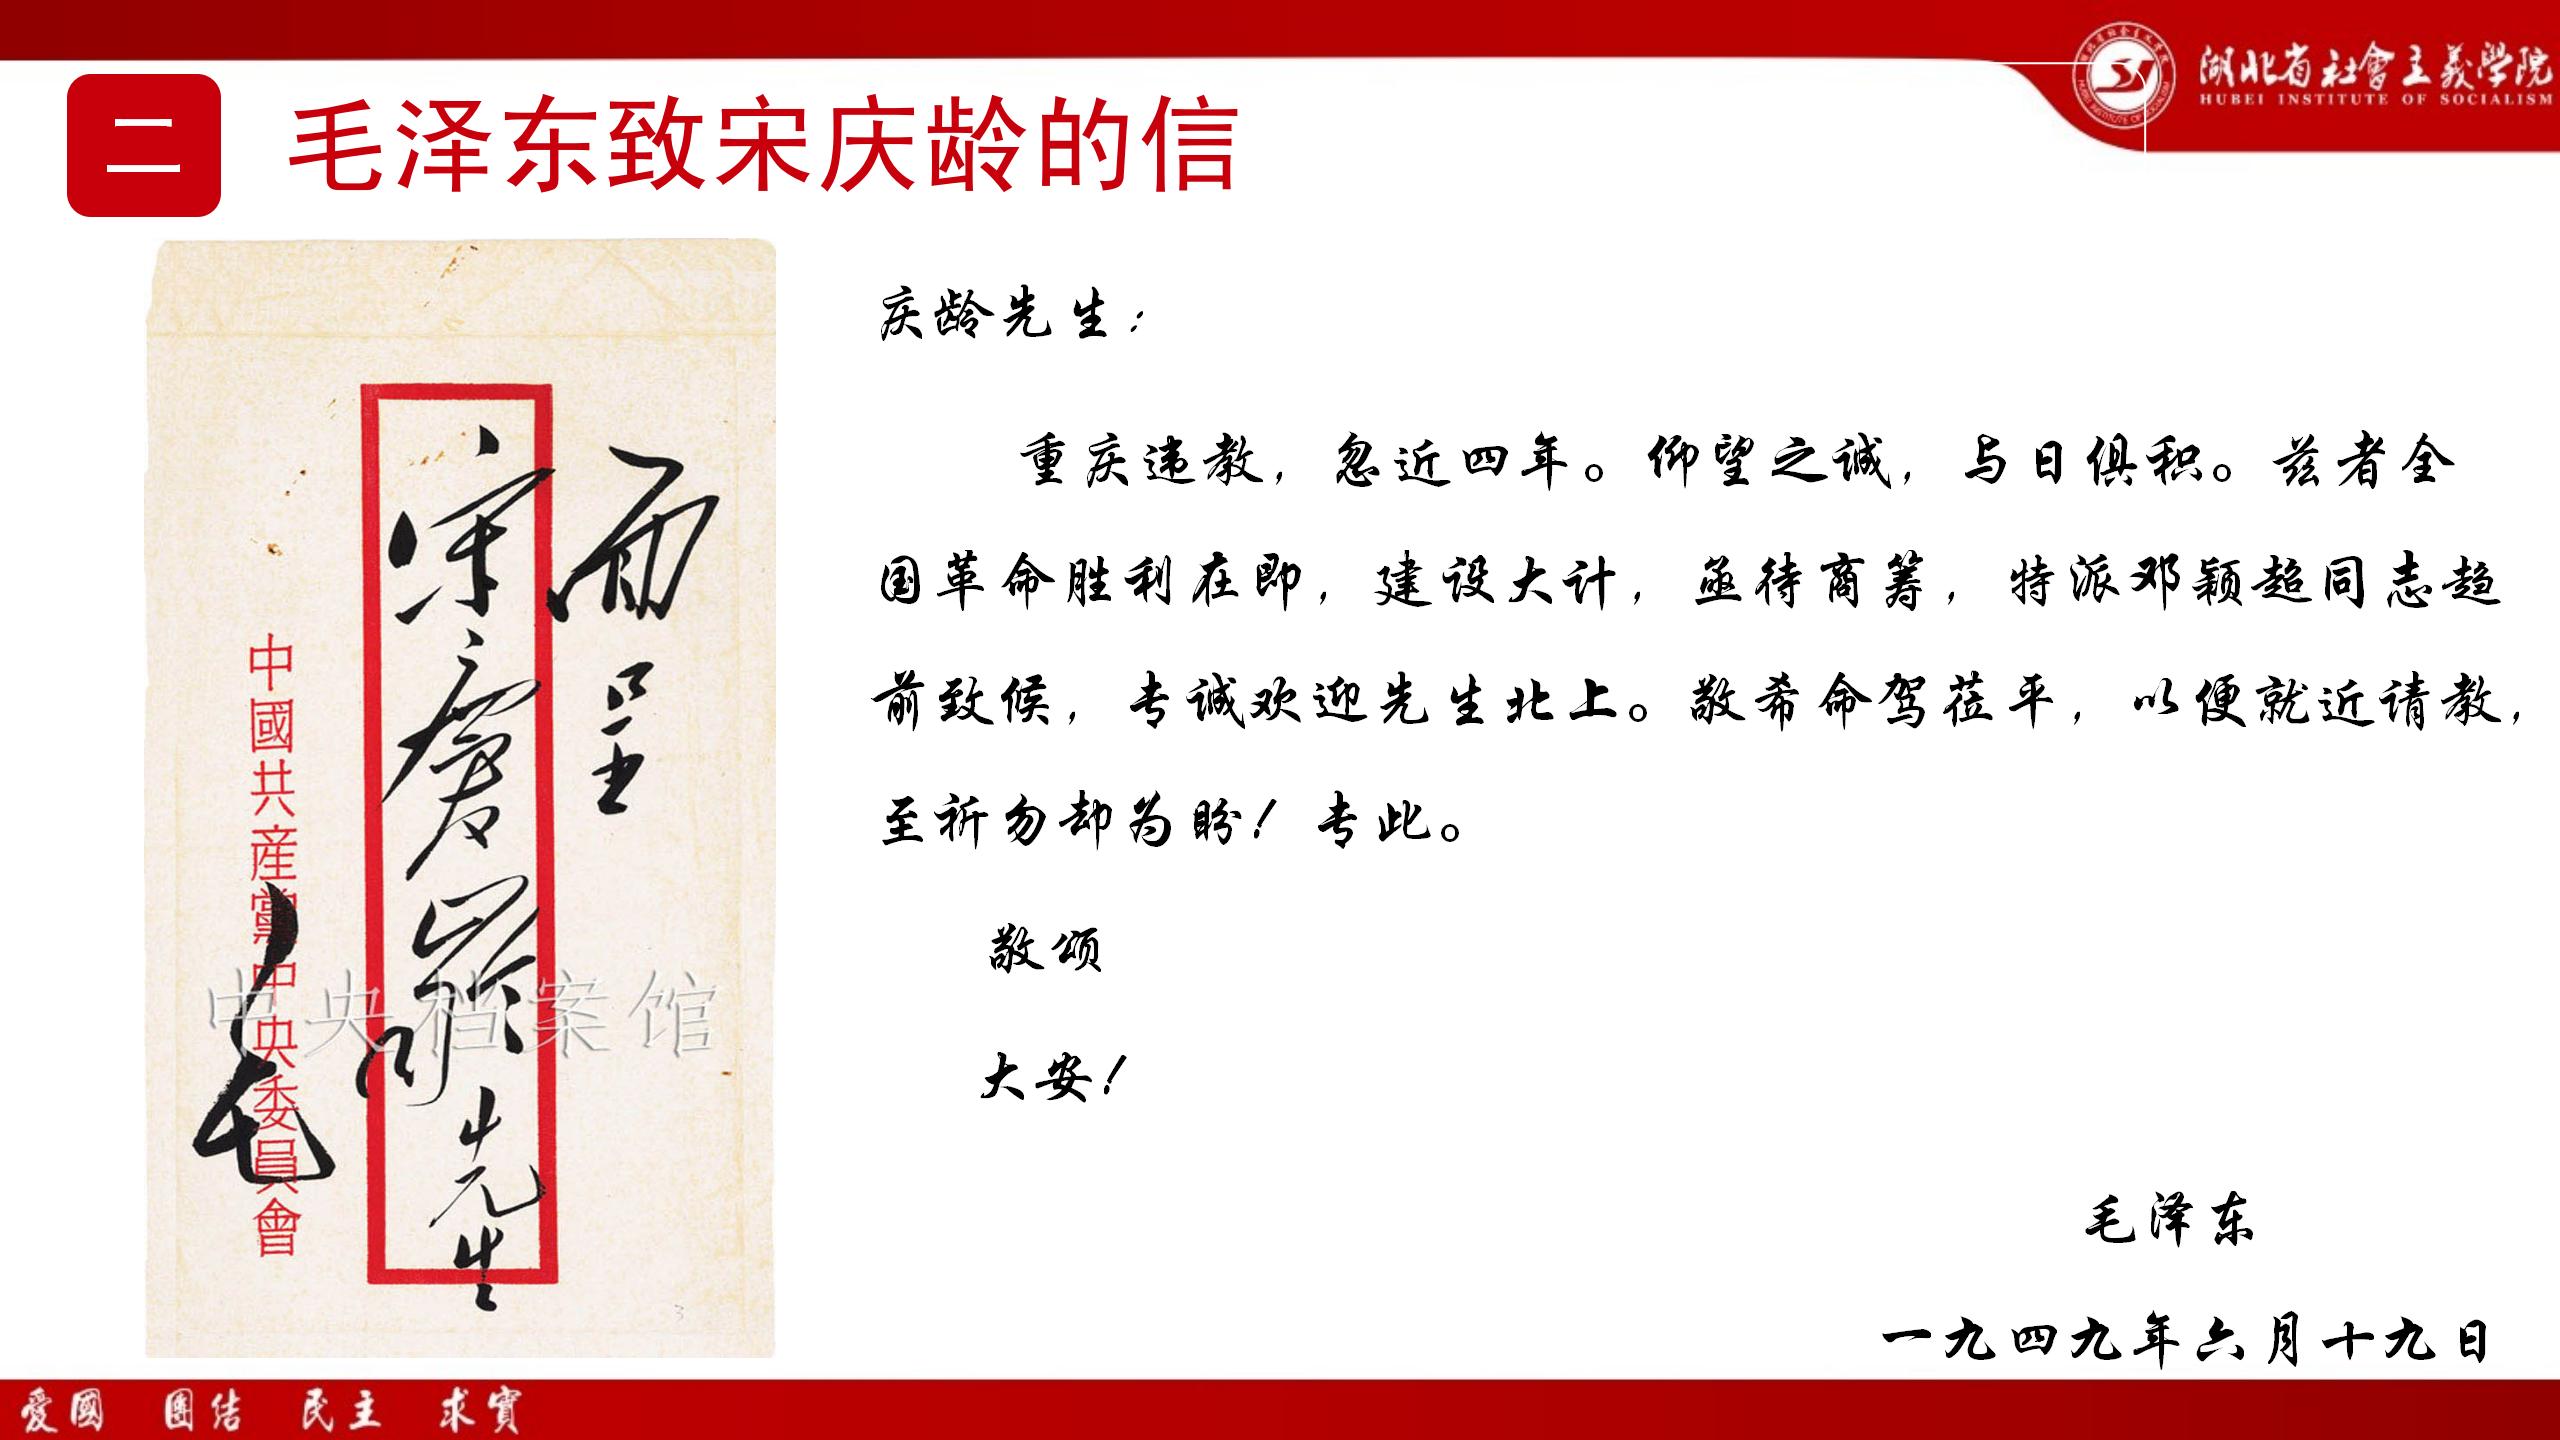 湖北省社會主義學院
HUBEI INSTITUTE OF SOCIALISM
二
毛泽东致宋庆龄的信
面呈
宋慶齡先生
中國共産黨中央委員會
毛
中央档案馆
3
庆龄先生：
重庆违教，忽近四年。仰望之诚，与日俱积。兹者全
国革命胜利在即，建设大计，亟待商筹，特派邓颖超同志趋
前致候，专诚欢迎先生北上。敬希命驾莅平，以便就近请教，
至祈勿却为盼！专此。
敬颂
大安！
毛泽东
一九四九年六月十九日
爱國 團结 民主 求實